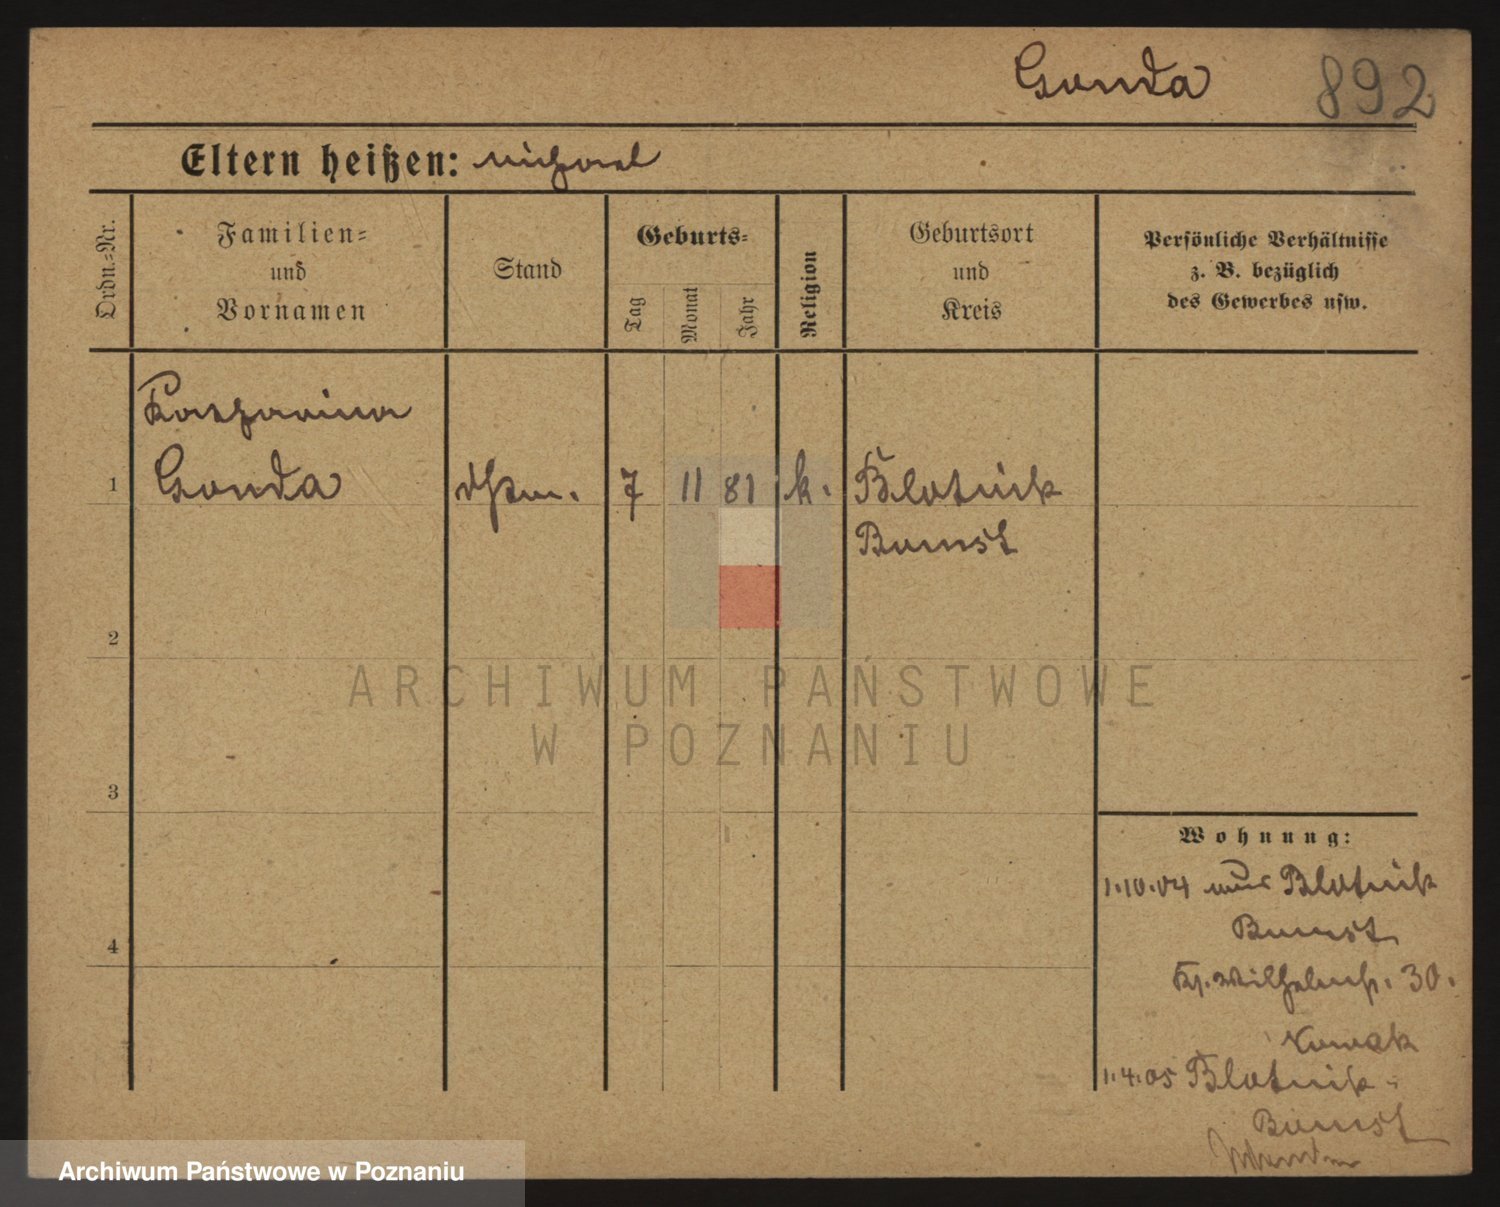 Gonda 892
Eltern heißen: Michael
Ordn.-Nr.
Familien-
und
Vornamen
Stand
Geburts-
Tag
Monat
Jahr
Religion
Geburtsort
und
Kreis
Persönliche Verhältnisse
z. B. bezüglich
des Gewerbes usw.
Katharina
1 Gonda 7 11 81 k. Blotnik
Bomst
2
3
4
Wohnung:
1.10.04 aus Blotnik
Bomst
30.
Nowak
1.4.05 Blotnik
Bomst
ARCHIWUM PAŃSTWOWE
W POZNANIU
Archiwum Państwowe w Poznaniu